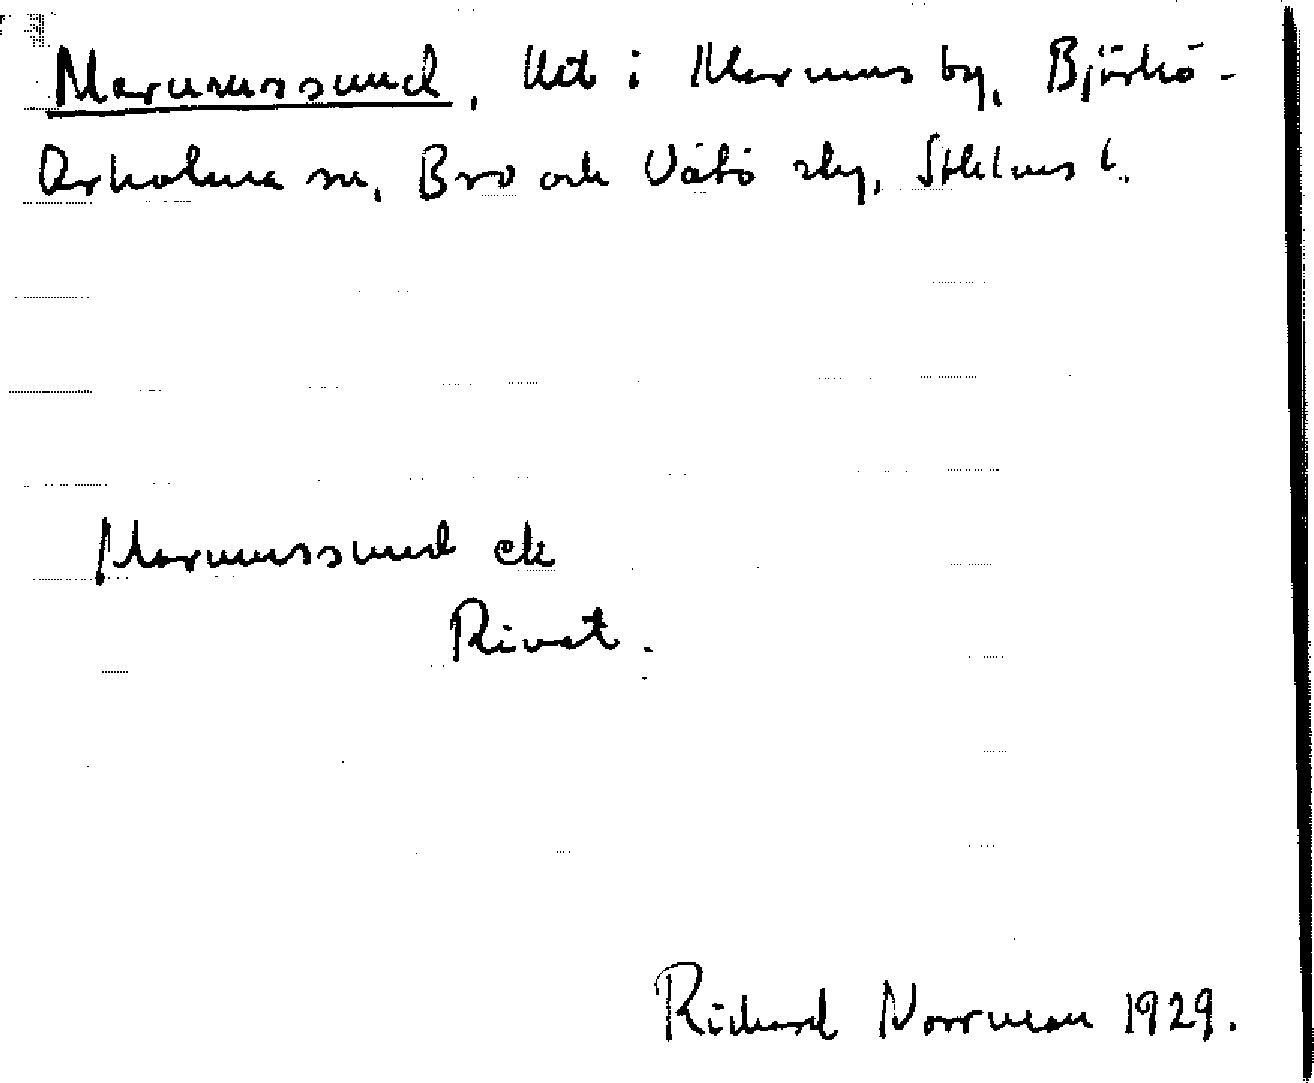 Marumssund, lht i Marums by, Björkö-
Arholma sn, Bro och Vätö skg, Sthlms l.
Marumssund ek
Rivet.
Richard Norrman 1929.